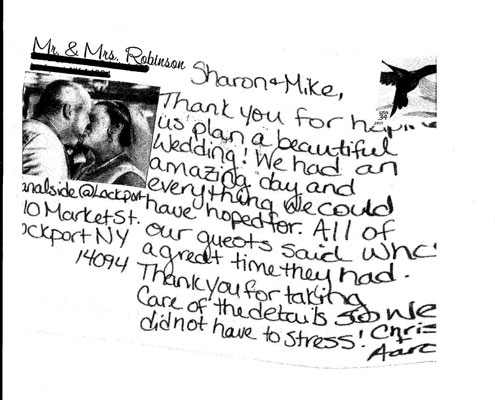 Mr. & Mrs. Robinson
Sharon & Mike,
Thank you for
us plan a beautiful
Wedding! We had an
amazing day and
everything we could
have hoped for. All of
our guests said
a great time they had.
Thank you for taking
care of the details so we
did not have to stress!
analside@Lockport
10 Market St.
ockport NY
14094